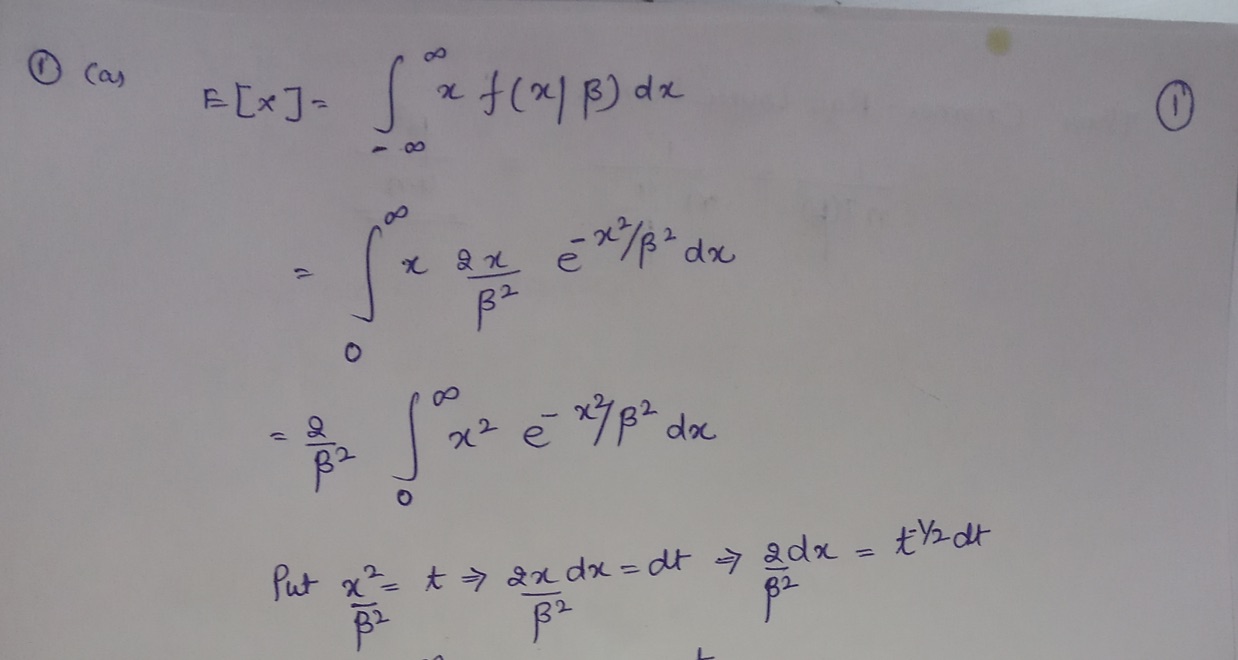 ① (a) E[x] = ∫_{-∞}^{∞} x f(x|β) dx ①
= ∫_{0}^{∞} x 2x/β² e^{-x²/β²} dx
= 2/β² ∫_{0}^{∞} x² e^{-x²/β²} dx
Put x²/β² = t ⇒ 2x/β² dx = dt ⇒ 2/β² dx = t^{-1/2} dt